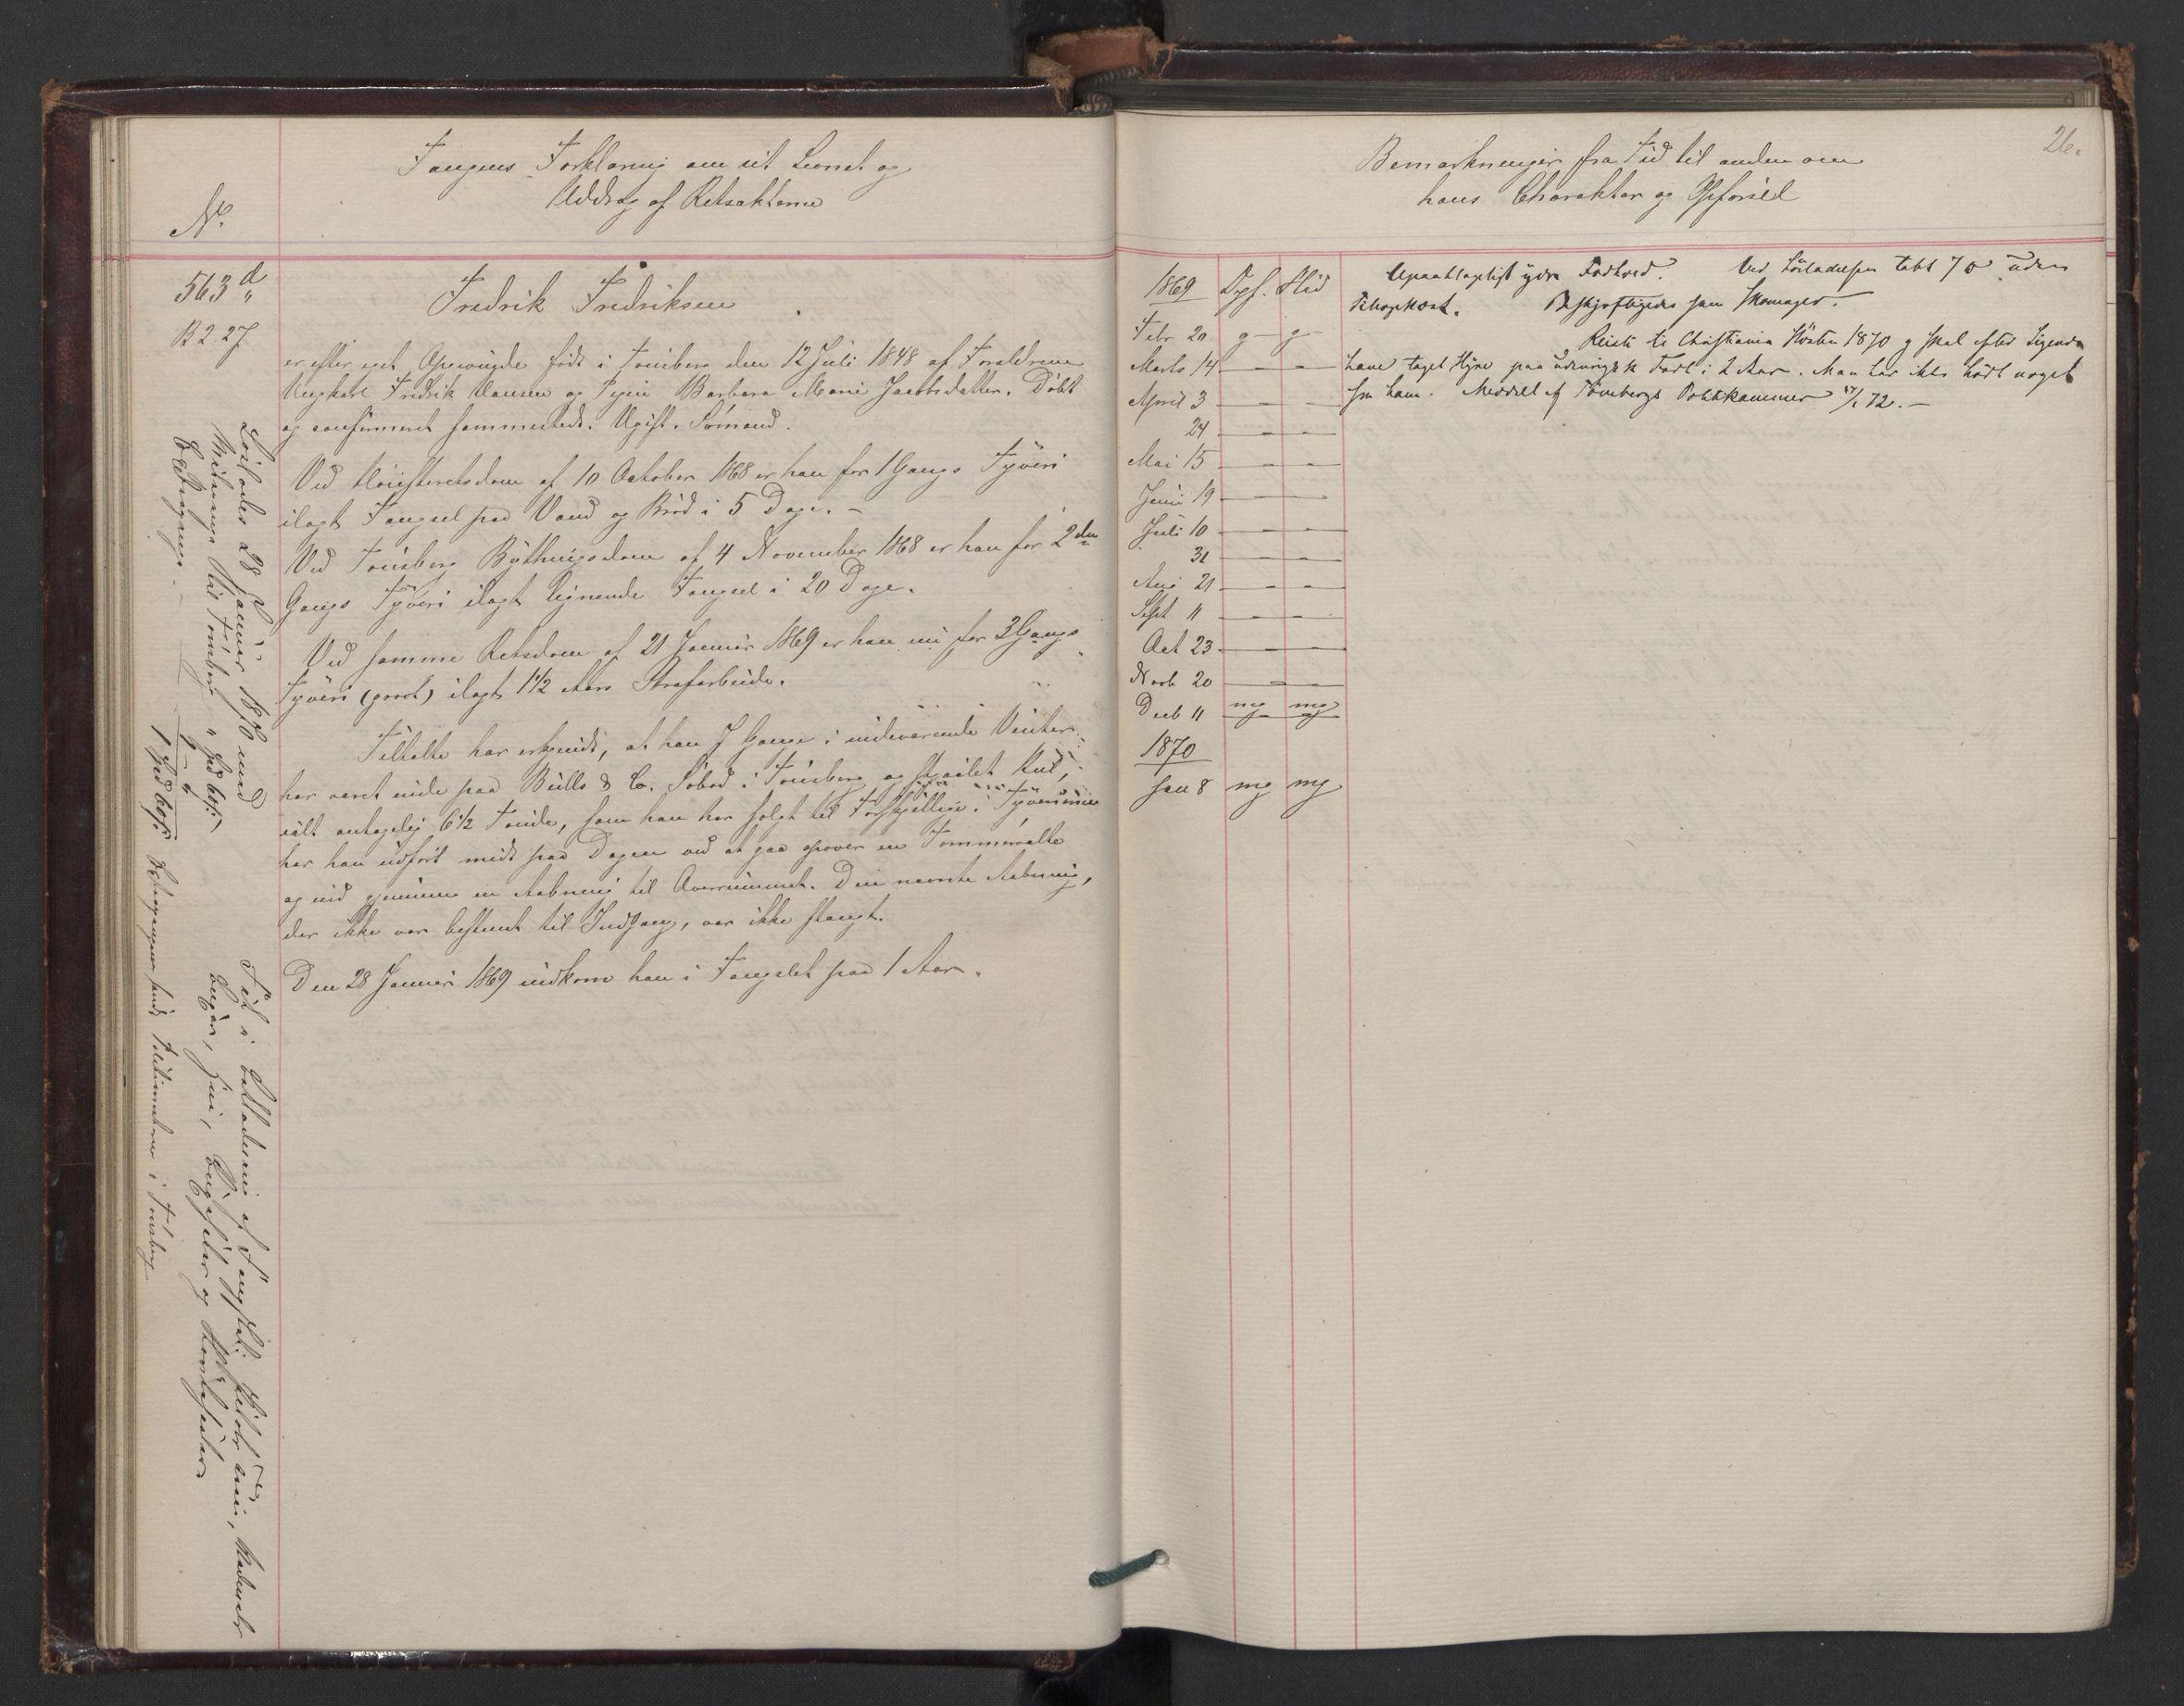 Fangens Forklaring om sit Levnet og
Uddrag af Retsakterne
No.
563 d
B 2. 27
Fredrik Fredriksen
er efter eget Opgivende født i Tønsberg den 12 Juli 1848 af Forældrene
Ungkarl Fredrik Hansen og Pigen Barbara Marie Jacobsdatter. Døbt
og confirmeret sammesteds. Ugift. Sømand.
Ved Høiesteretsdom af 10 October 1868 er han for 1 Gangs Tyveri
ilagt Fængsel paa Vand og Brød i 5 Dage. –
Ved Tønsberg Bythingsdom af 4 November 1868 er han for 2den
Gangs Tyveri ilagt lignende Fængsel i 20 Dage.
Ved samme Retsdom af 21 Januar 1869 er han nu for 3 Gangs
Tyveri (grovt) ilagt 1½ Aars Strafarbeide.
Tiltalte har erkjendt, at han 7 Gange i indeværende Vinter
har været inde paa Bülls & Co. Søbod i Tønsberg og stjaalet Rug,
ialt antagelig 6½ Tønde, som han har solgt til Forskjellige. Tyverierne
har han udført midt paa Dagen ved at gaa opover en Tømmervælte
og ind gjennem en Aabning til Qverrummet. Den nævnte Aabning,
der ikke var bestemt til Indgang, var ikke stængt.
Den 28 Januar 1869 indkom han i Fængslet paa 1 Aar.
Løslades 28 Januar 1870 med
Reisepenge til Tønsberg " Spd 60 ß
Oppebaaret 1 - "
1 Spd 60 ß
Fik i Beklædning af Fængslet:
Lue, Buxer og
Politimesteren i Tønsberg
26.
Bemærkninger fra Tid til anden om
hans Charakter og Opførsel
1869 Opf. Flid
Febr 20 g g
Marts 14 — —
April 3 — —
24 — —
Mai 15 — —
Juni 19 — —
Juli 10 — —
31 — —
Aug 21 — —
Sept 11 — —
Oct 23 — —
Novb 20 — —
Decb 11 mg mg
1870
Jan 8 mg mg
Upaaklageligt ydre Forhold. Ved Løsladelsen tabt 7 ℔ uden
Tillægskost. Beskjæftigedes som Skomager.
Reiste til Christiania Høsten 1870 og skal efter Sigende
have taget Hyre paa udenrigsk Fart i 2 Aar. Man har ikke hørt noget
fra ham. Meddelt af Tønsbergs Politikammer 72. –